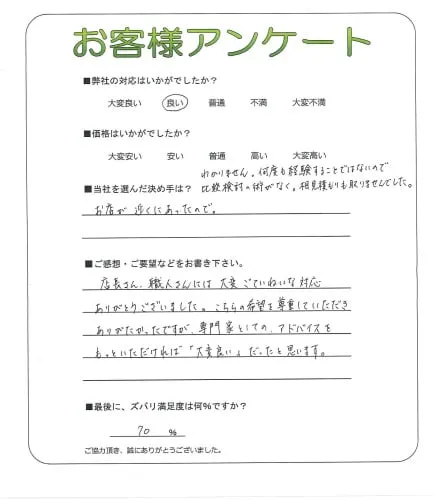 お客様アンケート
■弊社の対応はいかがでしたか？
大変良い 良い 普通 不満 大変不満
■価格はいかがでしたか？
大変安い 安い 普通 高い 大変高い
わかりません。何度も経験することではないので
比較検討の術がなく。相見積もりも取りませんでした。
■当社を選んだ決め手は？
お店が近くにあったので。
■ご感想・ご要望などをお書き下さい。
店長さん、職人さんには大変ごていねいな対応
ありがとうございました。こちらの希望を尊重していただき
ありがたかったですが、専門家としての、アドバイスを
もっといただければ「大変良い」だったと思います。
■最後に、ズバリ満足度は何％ですか？
70 %
ご協力頂き、誠にありがとうございました。